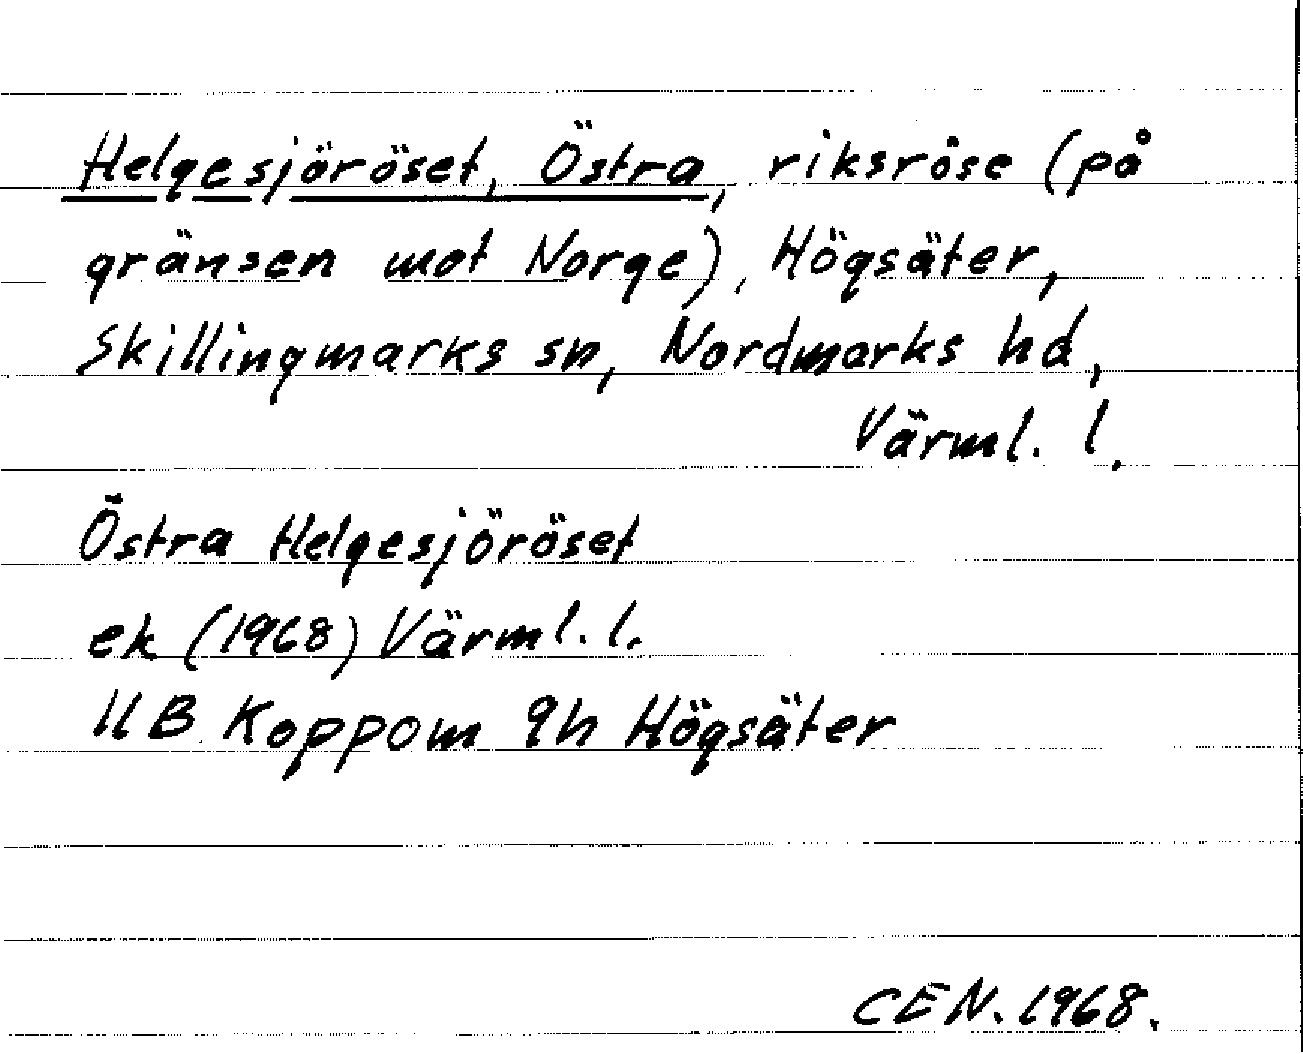 Helgesjöröset, Östra, riksröse (på
gränsen mot Norge), Högsäter,
Skillingmarks sn, Nordmarks hd,
Värml. l.
Östra Helgesjöröset
ek (1968) Värml. l.
11B Koppom 9h Högsäter
CEN. 1968.